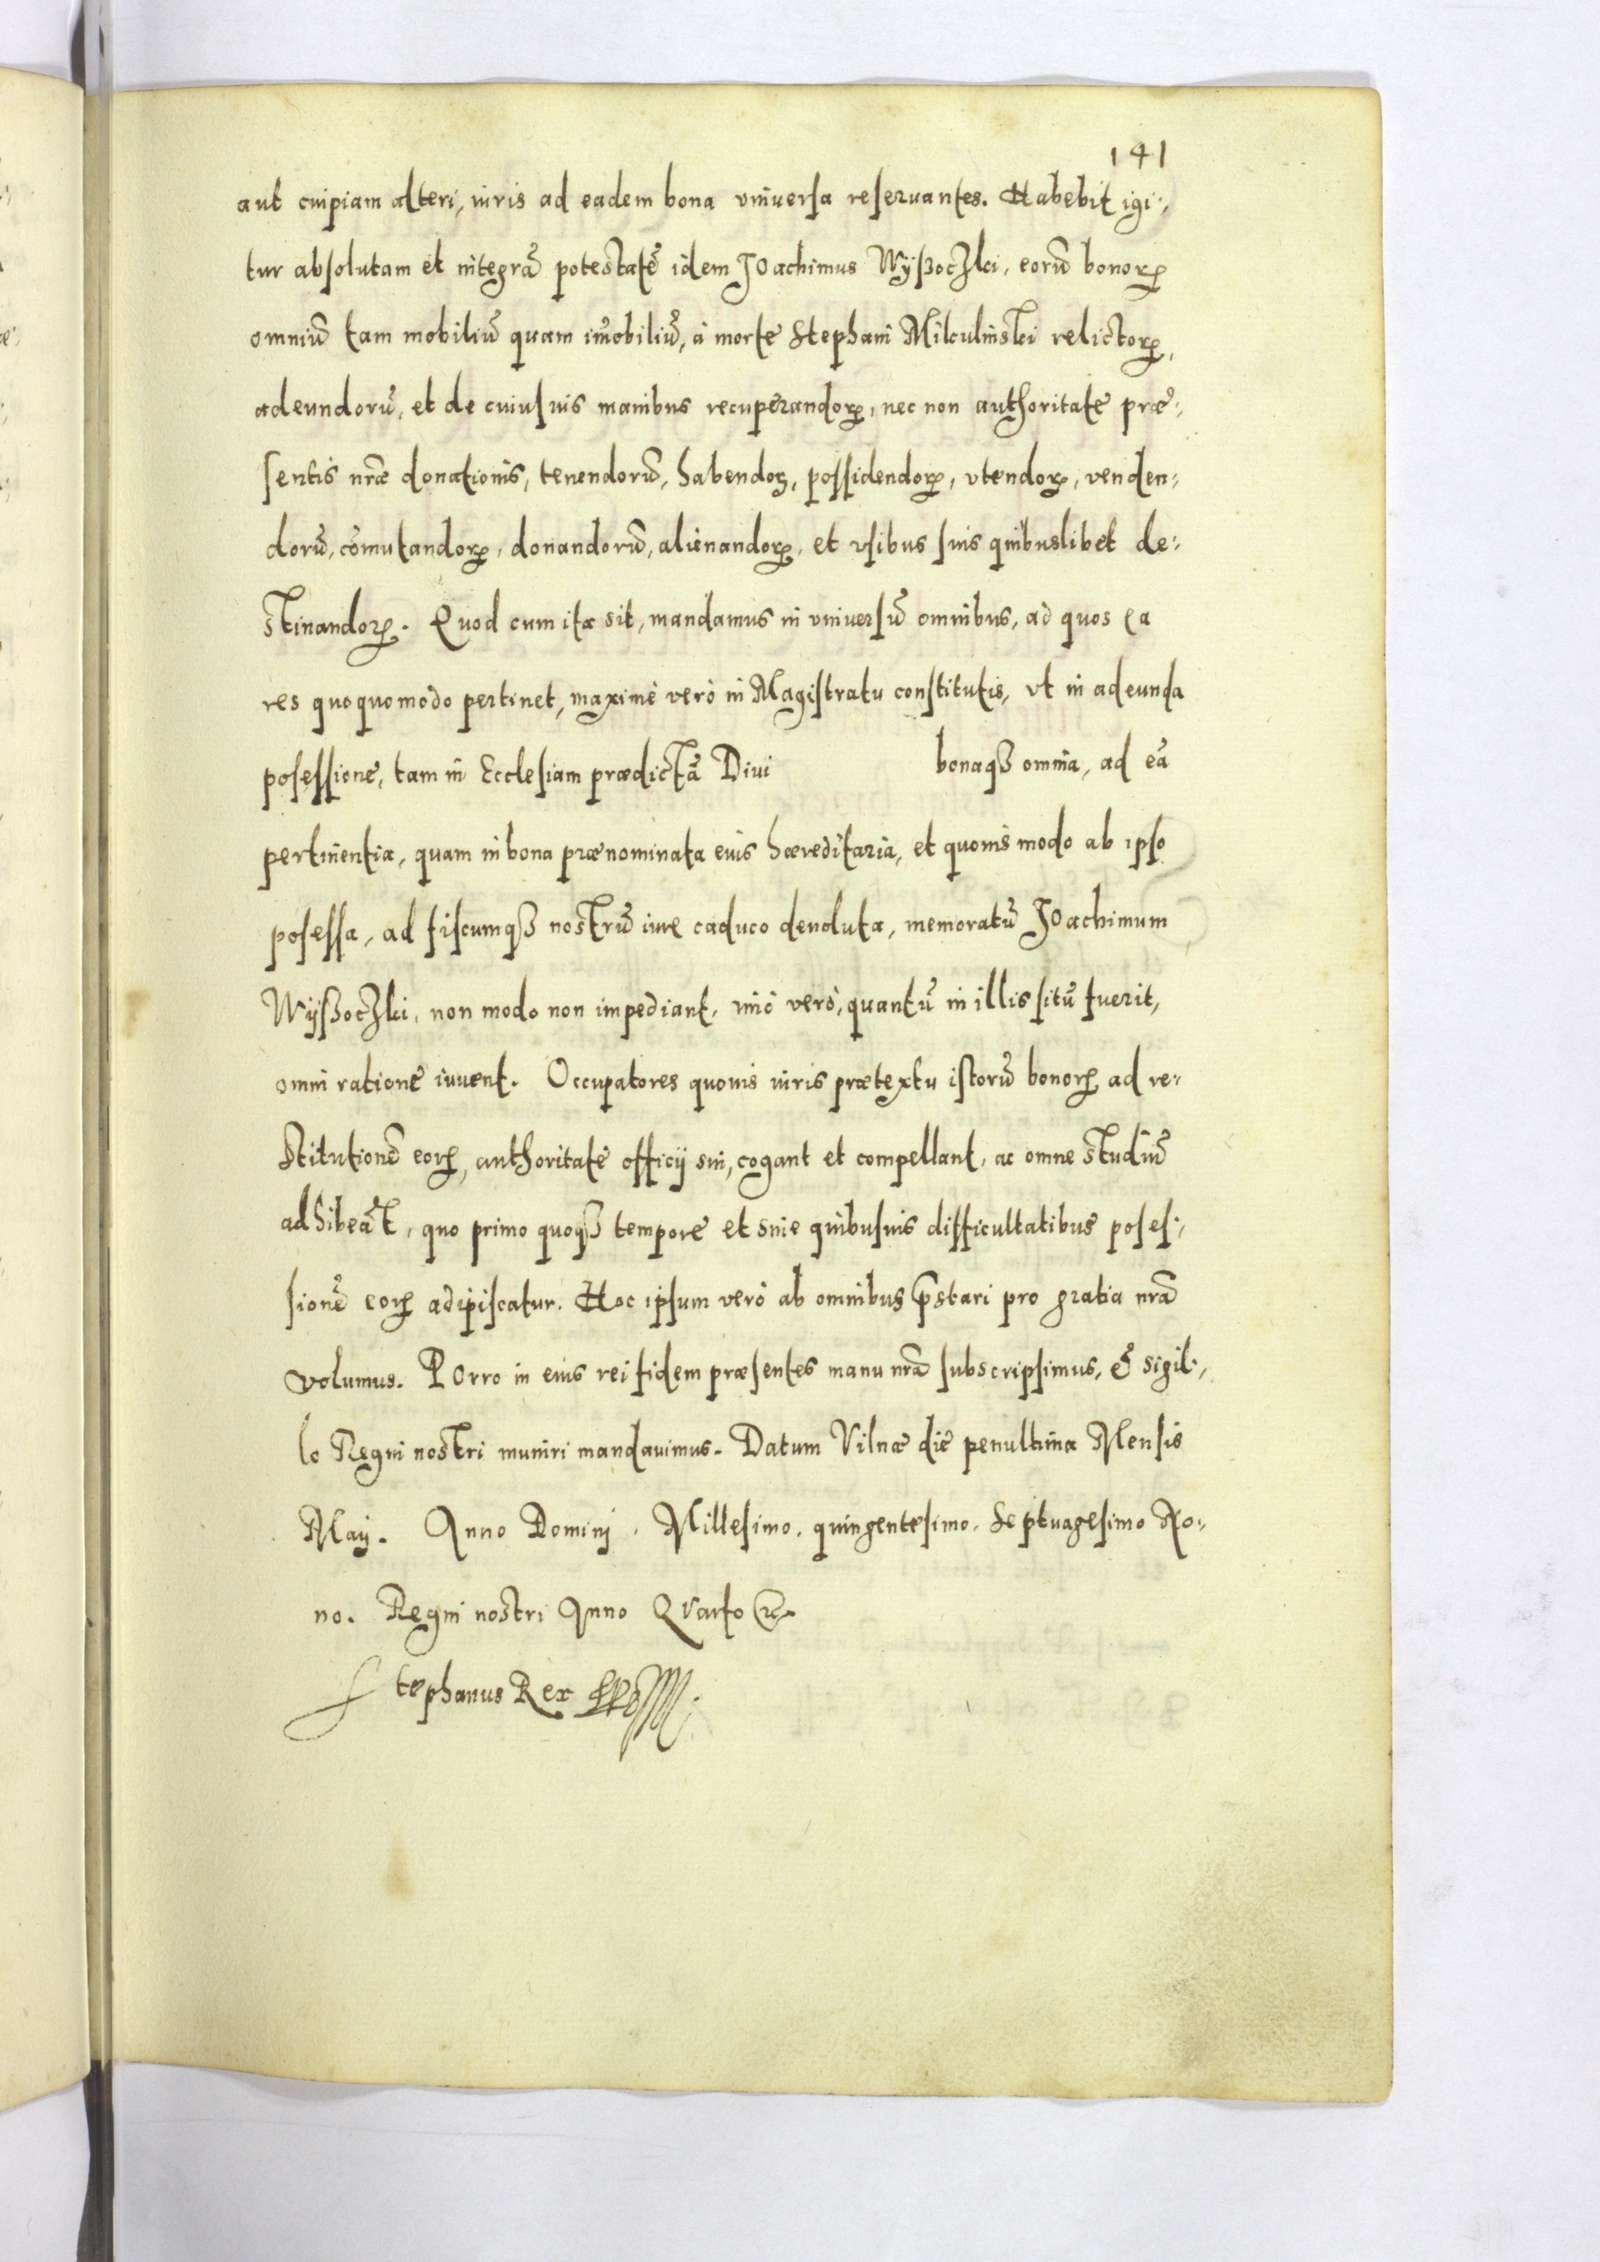 141
aut cuipiam alteri, iuris ad eadem bona vniuersa reseruantes. Habebit igi-
tur absolutam et integrã potestatẽ idem JOachimus Wÿßoczki, eorũ bonoꝝ
omniũ tam mobiliũ quam im̃obiliũ, à morte Stephani Mikulinski relictoꝝ,
adeundorũ, et de cuiusuis manibus recuperandoꝝ, nec non authoritate præ-
sentis nr̃æ donationis, tenendorũ, habendoꝝ, possidendoꝝ, vtendoꝝ, venden-
dorũ, com̃utandoꝝ, donandorũ, alienandoꝝ, et vsibus suis quibuslibet de-
stinandoꝝ. Quod cum ita sit, mandamus in vniuersũ omnibus, ad quos ea
res quoquomodo pertinet, maximè verò in Magistratu constitutis, vt in adeunda
posessione, tam in Ecclesiam prædictã Diui bonaqꝫ omnia, ad eã
pertinentia, quam in bona prænominata eius hæreditaria, et quouis modo ab ipso
posessa, ad fiscumqꝫ nostrũ iure caduco deuoluta, memoratũ JOachimum
Wÿßoczki, non modo non impediant, imò verò, quantũ in illis sitũ fuerit,
omni ratione iuuent. Occupatores quouis iuris prætextu istorũ bonoꝝ ad re-
stitutionẽ eoꝝ, authoritate officÿ sui, cogant et compellant, ac omne studiũ
adhibeãt, quo primo quoqꝫ tempore et sine quibusuis difficultatibus poses-
sionẽ eoꝝ adipiscatur. Hoc ipsum verò ab omnibus p̃stari pro gratia nr̃a
volumus. POrro in eius rei fidem præsentes manu nr̃a subscripsimus, & sigil-
lo Regni nostri muniri mandauimus. Datum Vilnæ die penultima Mensis
Maÿ. Anno Dominj, Millesimo, quingentesimo, Septuagesimo No-
no. Regni nostri Anno Quarto
Stephanus Rex